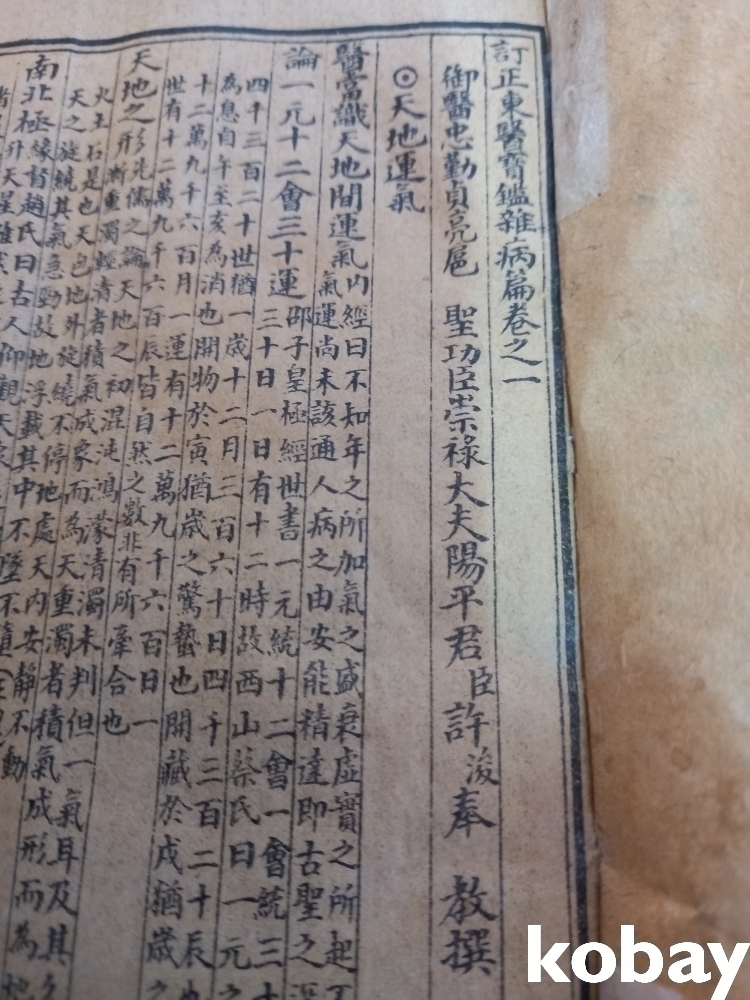 訂正東醫寶鑑雜病篇卷之一
御醫忠勤貞亮扈 聖功臣崇祿大夫陽平君臣許浚奉 教撰
⊙天地運氣
醫當識天地間運氣 內經曰不知年之所加氣之盛衰虛實之所起不
氣運尚未該通人病之由安能精達即古聖之深
論一元十二會三十運 邵子皇極經世書一元統十二會一會統三十
三十日一日有十二時故西山蔡氏曰一元之
四千三百二十世猶一歲十二月三百六十日四千三百二十辰也
為息自午至亥為消也開物於寅猶歲之驚蟄也開藏於戌猶歲之
十二萬九千六百月一運有十二萬九千六百日一
世有十二萬九千六百辰皆自然之數非有所牽合也
天地之形 先儒之論天地之初混沌鴻濛清濁未判但一氣耳及其久
漸重濁輕清者積氣成象而為天重濁者積氣成形而為地
火土石是也天包地外旋繞不停地處天內安靜不動
天之旋繞其氣急勁故地浮載其中不墜不
南北極 緣督趙氏曰古人仰觀天象
kobay